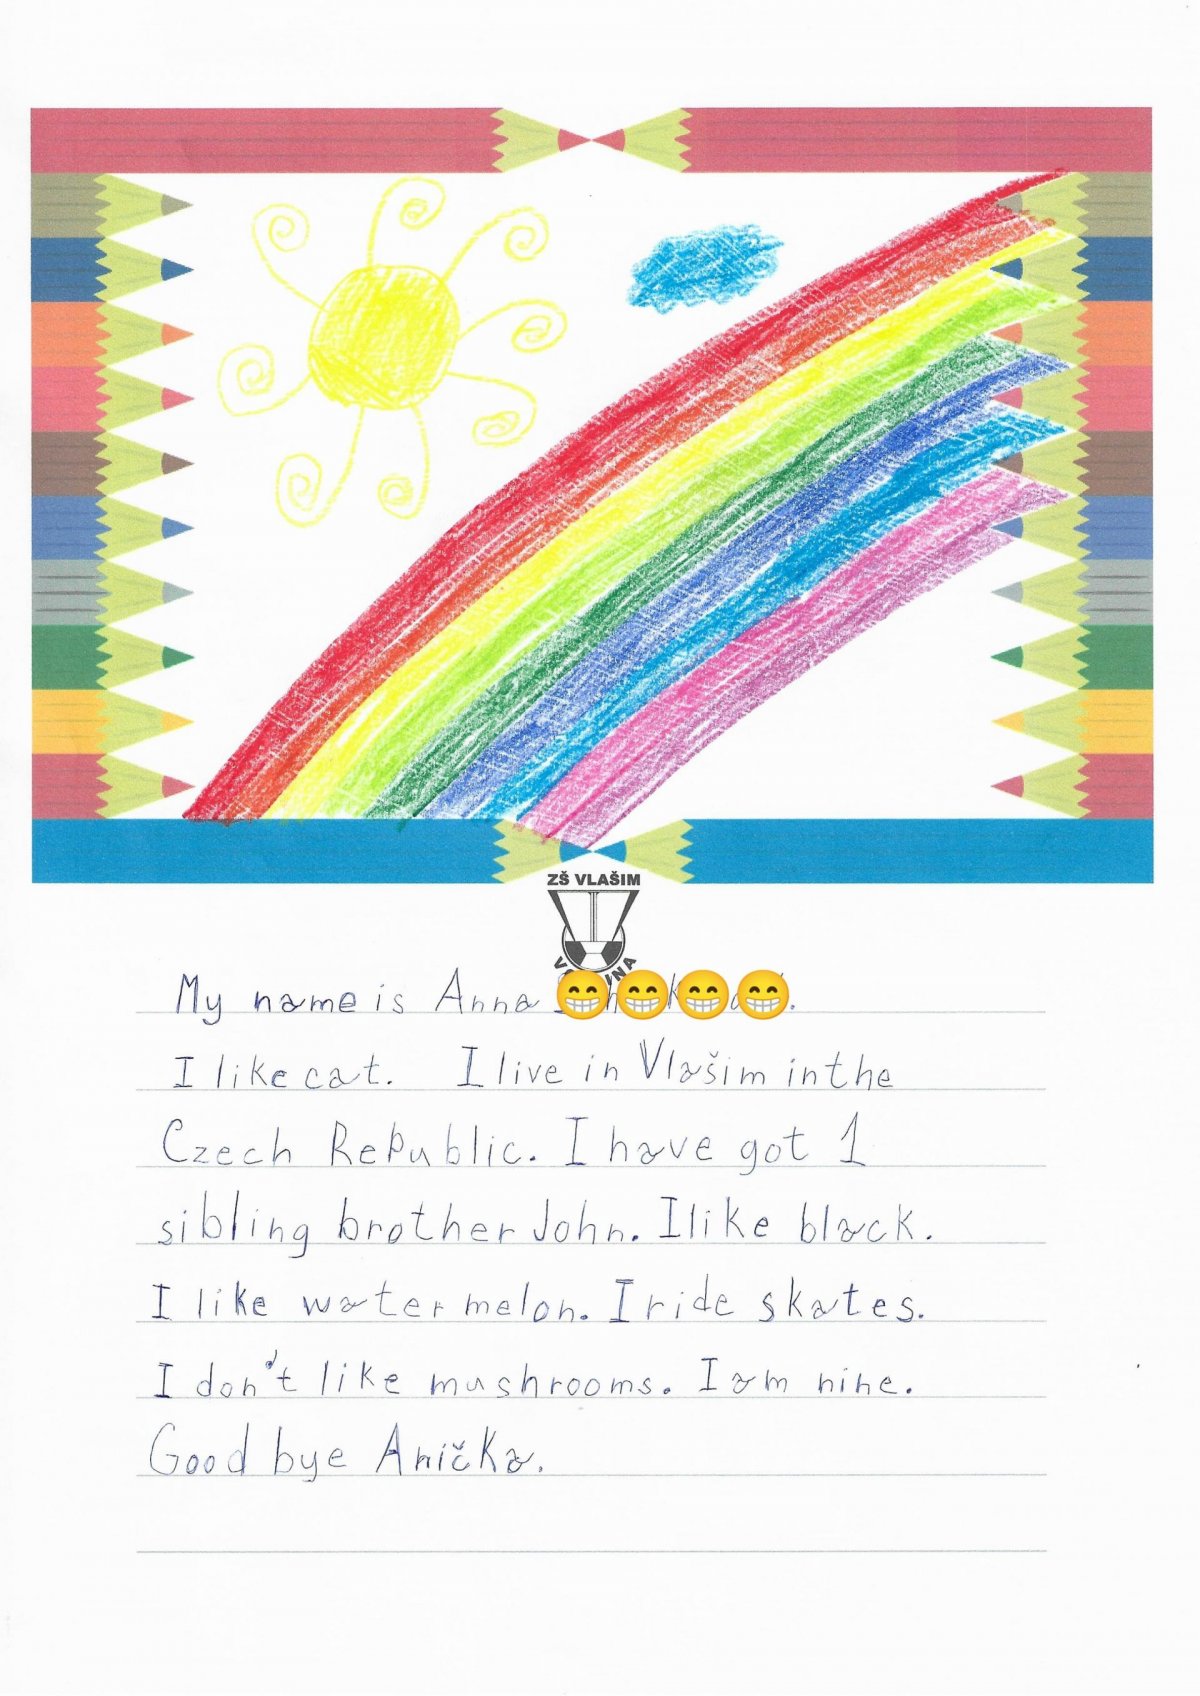 ZŠ VLAŠIM
My name is Anna
I like cat. I live in Vlašim in the
Czech RePublic. I have got 1
sibling brother John. I like black.
I like water melon. I ride skates.
I don't like mushrooms. I am nine.
Good bye Anička.